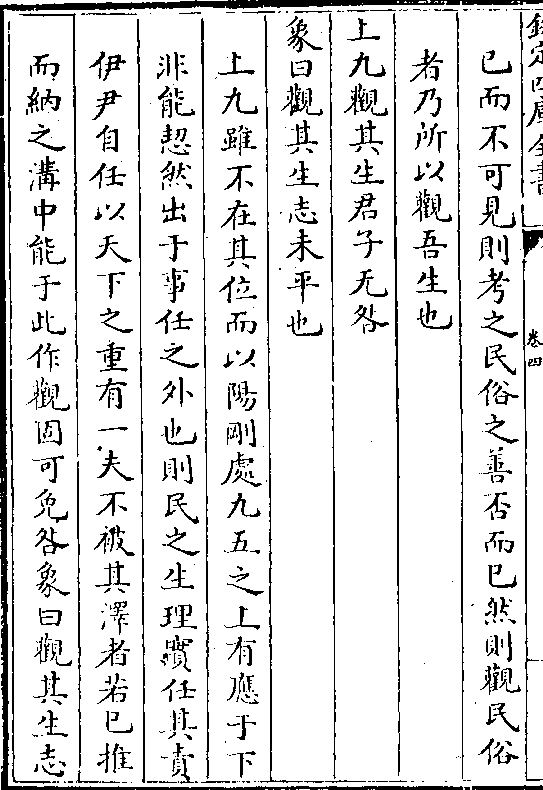 欽定四庫全書
卷四
已而不可見則考之民俗之善否而已然則觀民俗
者乃所以觀吾生也
上九觀其生君子无咎
象曰觀其生志未平也
上九雖不在其位而以陽剛處九五之上有應于下
非能恝然出于事任之外也則民之生理實任其責
伊尹自任以天下之重有一夫不被其澤者若已推
而納之溝中能于此作觀固可免咎象曰觀其生志